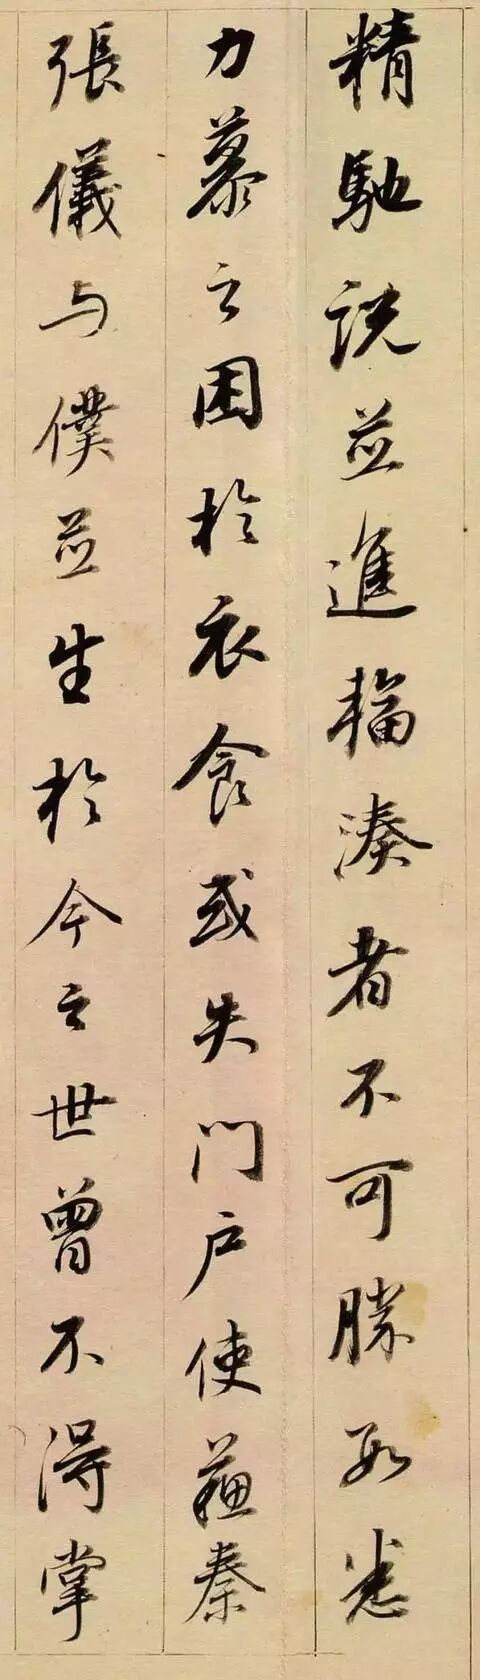 精馳説並進輻湊者不可勝數悉
力慕之困於衣食或失門户使蘇秦
張儀与僕並生於今之世曾不得掌